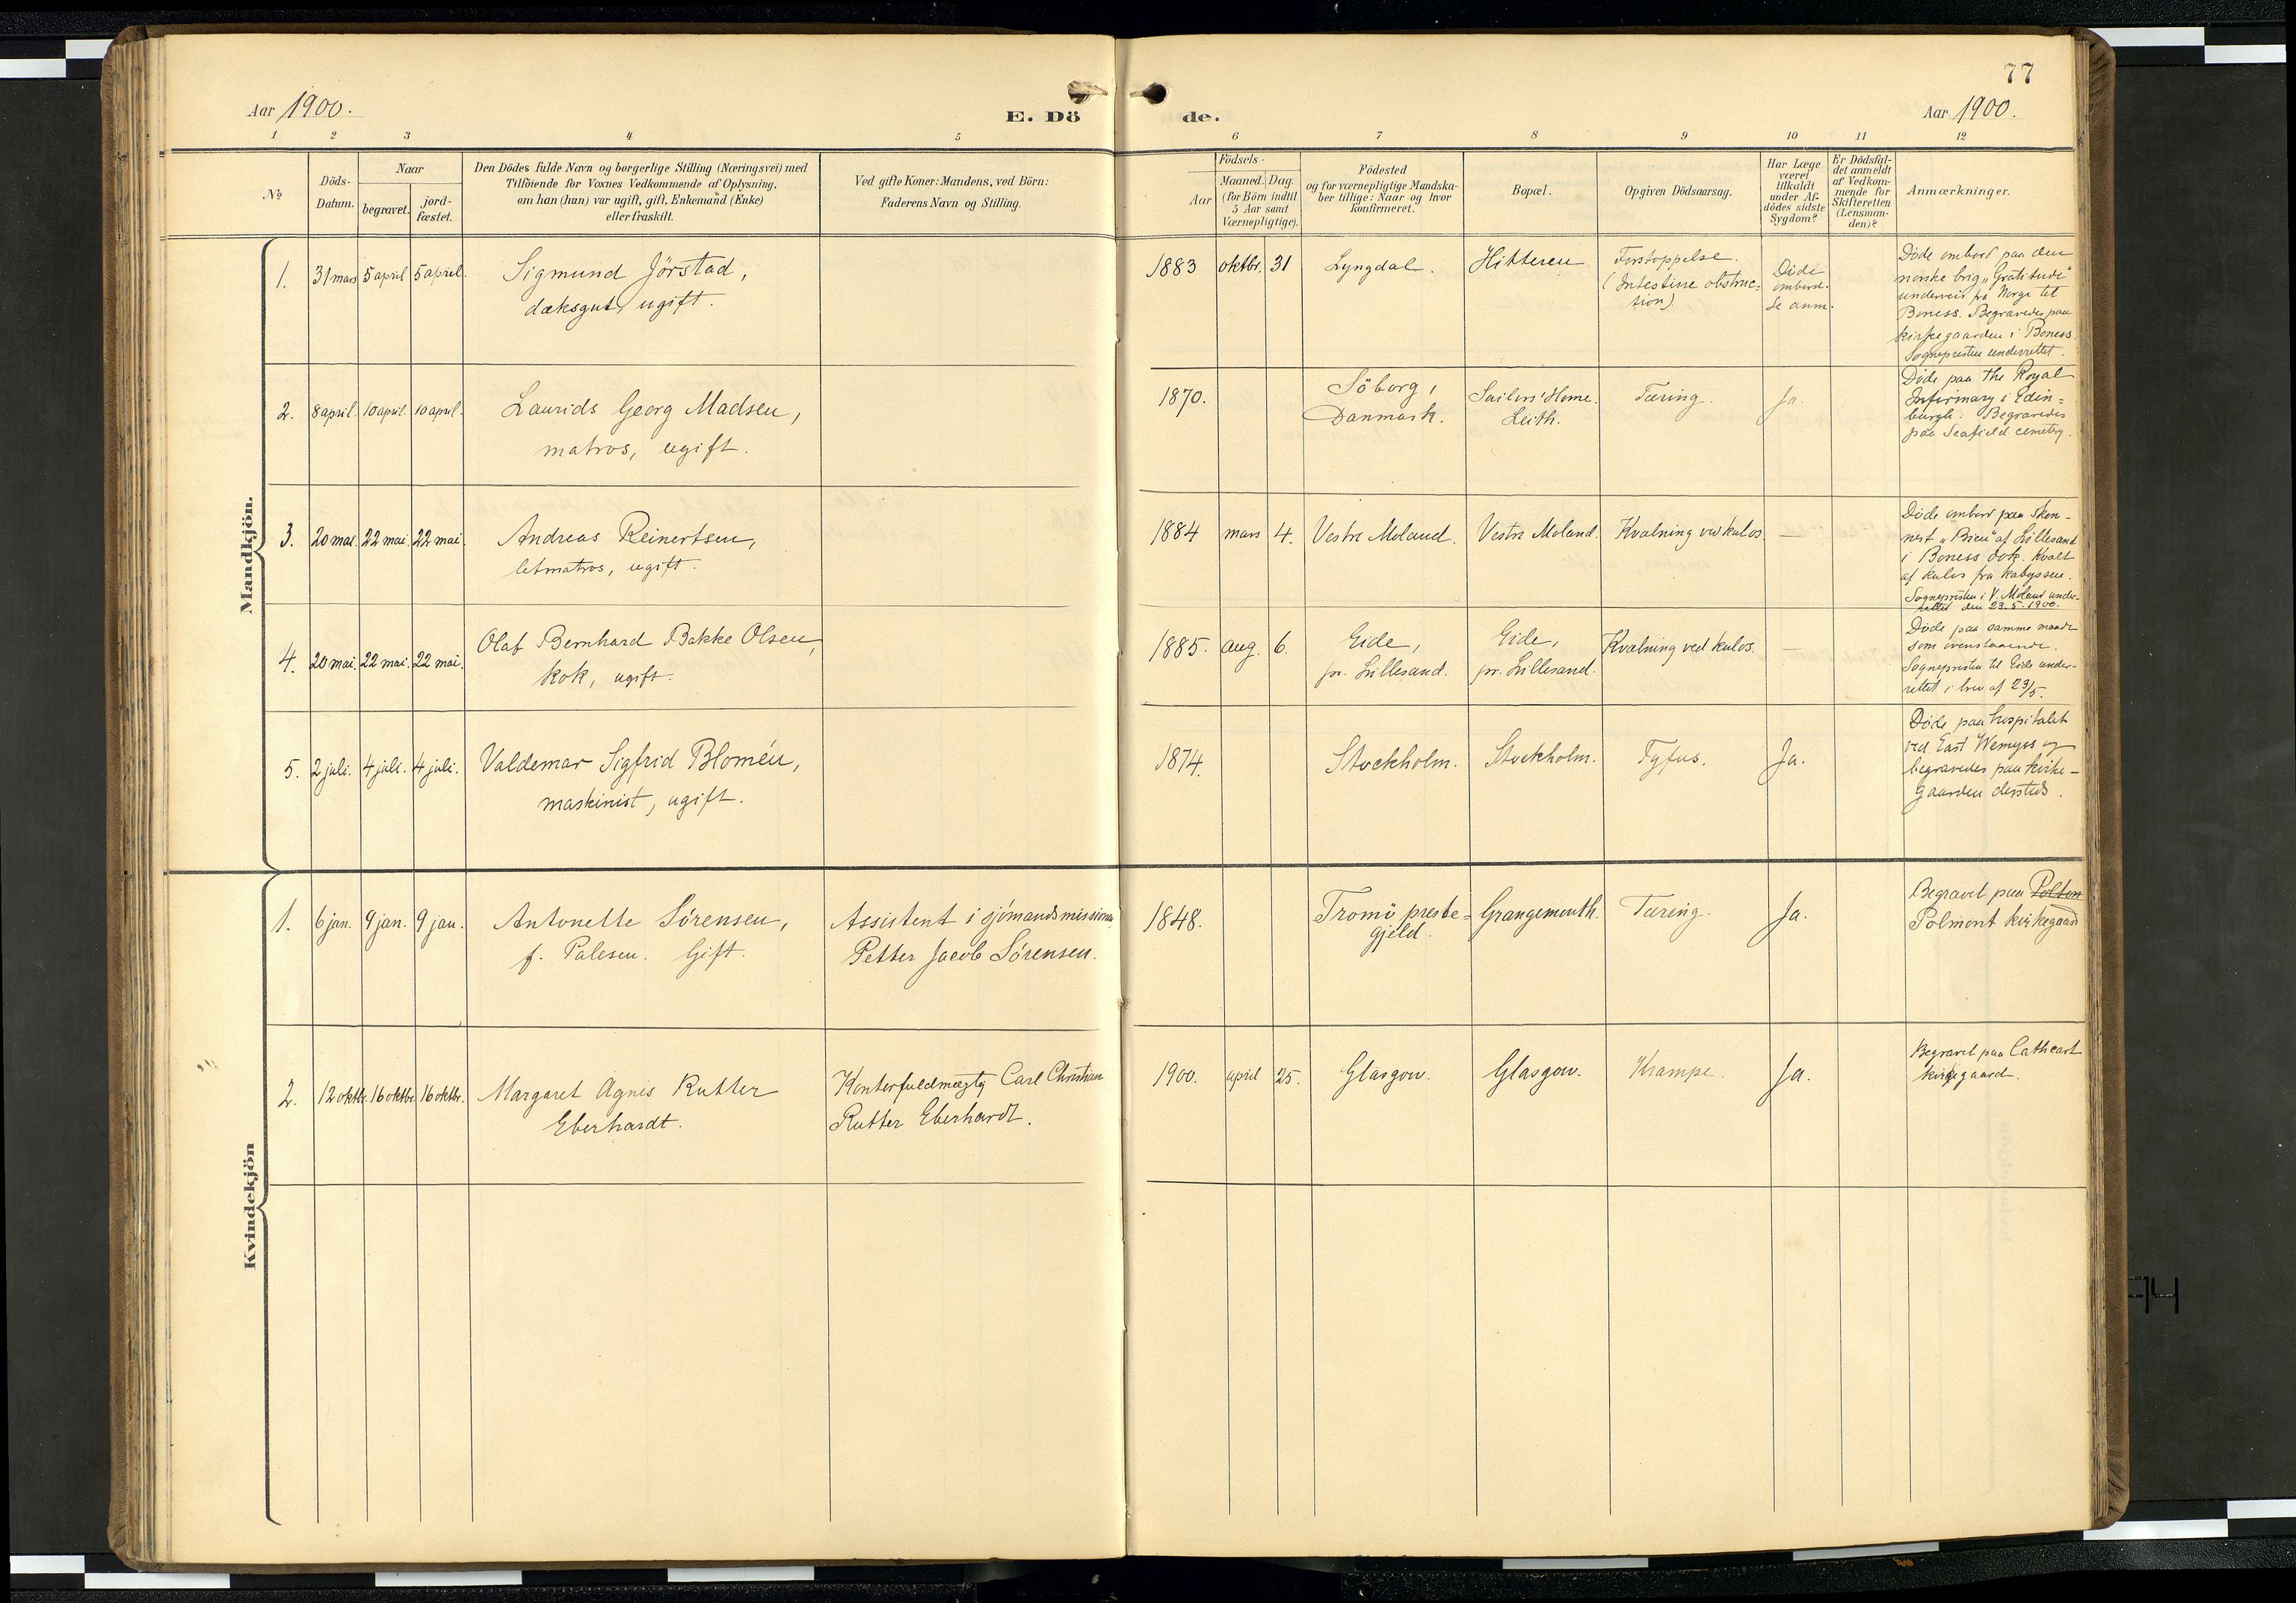 77
Aar 1900.
E. Dö de.
Aar 1900.
1 2 3 4 5 6 7 8 9 10 11 12
No
Döds-
Datum.
Naar
begravet.
jord-
fæstet.
Den Dödes fulde Navn og borgerlige Stilling (Næringsvei) med
Tilföiende for Voxnes Vedkommende af Oplysning,
om han (hun) var ugift, gift, Enkemand (Enke)
eller fraskilt.
Ved gifte Koner: Mandens, ved Börn:
Faderens Navn og Stilling.
Födsels-
Aar
Maaned. Dag.
(for Börn indtil
5 Aar samt
Værnepligtige).
Födested
og for værnepligtige Mandska-
ber tillige: Naar og hvor
konfirmeret.
Bopæl.
Opgiven Dödsaarsag.
Har Læge
været
tilkaldt
under Af-
dödes sidste
Sygdom?
Er Dödsfal-
det anmeldt
af Vedkom-
mende for
Skifteretten
(Lensman-
den)?
Anmærkninger.
Mandkjön.
1. 31 mars 5 april 5 april.
Sigmund Jörstad,
dæksgut, ugift.
1883 oktbr. 31
Lyngdal.
Hitteren
Forstoppelse.
(Intestine obstruc-
tion)
Døde
ombord.
Se anm.
Døde ombord paa den
norske brig „Gratitude"
underveis fra Norge til
Boness. Begravedes paa
kirkegaarden i Boness.
Sognepresten underrettet.
2. 8 april. 10 april. 10 april.
Laurids Georg Madsen,
matros, ugift.
1870.
Söborg,
Danmark.
Sailors' Home.
Leith.
Tæring.
Ja.
Døde paa the Royal
Infirmary i Edin-
burgh. Begravedes
paa Seafield cemetery.
3. 20 mai. 22 mai. 22 mai.
Andreas Reinertsen,
letmatros, ugift.
1884 mars 4.
Vestre Moland.
Vestre Moland.
Kvælning ved kulos.
—
Døde ombord paa skon-
nert „Bien" af Lillesand
i Boness dok. Kvalt
af kulos fra kabyssen.
Sognepresten i V. Moland under-
rettet den 23.5.1900.
4. 20 mai. 22 mai. 22 mai.
Olaf Bernhard Bakke Olsen,
kok, ugift.
1885. aug. 6.
Eide,
pr. Lillesand.
Eide,
pr. Lillesand.
Kvælning ved kulos.
—
Døde paa samme maade
som ovenstaaende.
Sognepresten til Eide under-
rettet i brev af 23/5.
5. 2 juli. 4 juli. 4 juli.
Valdemar Sigfrid Blomén,
maskinist, ugift.
1874.
Stockholm.
Stockholm.
Tyfus.
Ja.
Døde paa hospitalet
ved East Wemyss og
begravedes paa kirke-
gaarden dersteds.
Kvindekjön
1. 6 jan. 9 jan. 9 jan.
Antonette Sörensen,
f. Palesen. Gift.
Assistent i sjömandsmissionen
Petter Jacob Sörensen.
1848.
Tromö preste-
gjeld.
Grangemouth.
Tæring.
Ja.
Begravet paa Polton
Polmont kirkegaard
2. 12 oktbr. 16 oktbr. 16 oktbr.
Margaret Agnes Rutter
Eberhardt.
Kontorfuldmægtig Carl Christian
Rutter Eberhardt.
1900. april 25.
Glasgow.
Glasgow.
Krampe.
Ja.
Begravet paa Cathcart
kirkegaard.